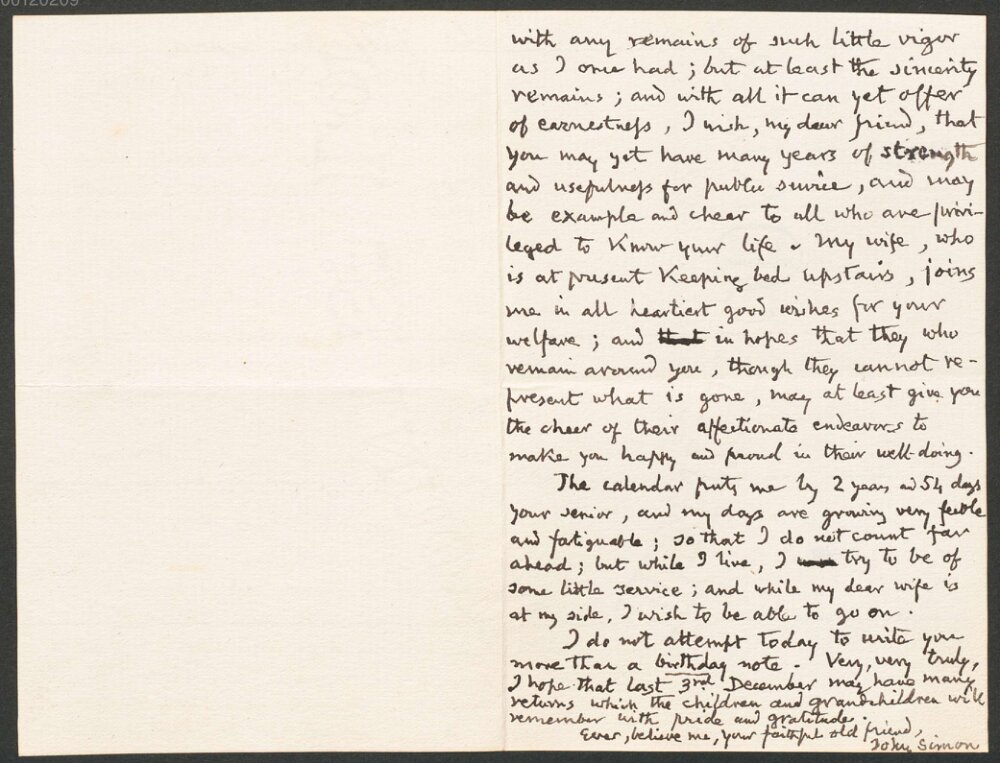 00120209
with any remains of such little vigor
as I once had ; but at least the sincerity
remains ; and with all it can yet offer
of earnestness , I wish , my dear friend , that
you may yet have many years of strength
and usefulness for public service , and may
be example and cheer to all who are privi-
leged to know your life . My wife , who
is at present keeping bed upstairs , joins
me in all heartiest good wishes for your
welfare ; and that in hopes that they who
remain around you , though they cannot re-
present what is gone , may at least give you
the cheer of their affectionate endeavors to
make you happy and proud in their well-doing .
The calendar puts me by 2 years and 54 days
your senior , and my days are growing very feeble
and fatiguable ; so that I do not count far
ahead ; but while I live , I try to be of
some little service ; and while my dear wife is
at my side , I wish to be able to go on .
I do not attempt today to write you
more than a birthday note . Very, very truly,
I hope that last 3rd December may have many
returns which the children and grandchildren will
remember with pride and gratitude .
Ever, believe me, your faithful old friend,
John Simon